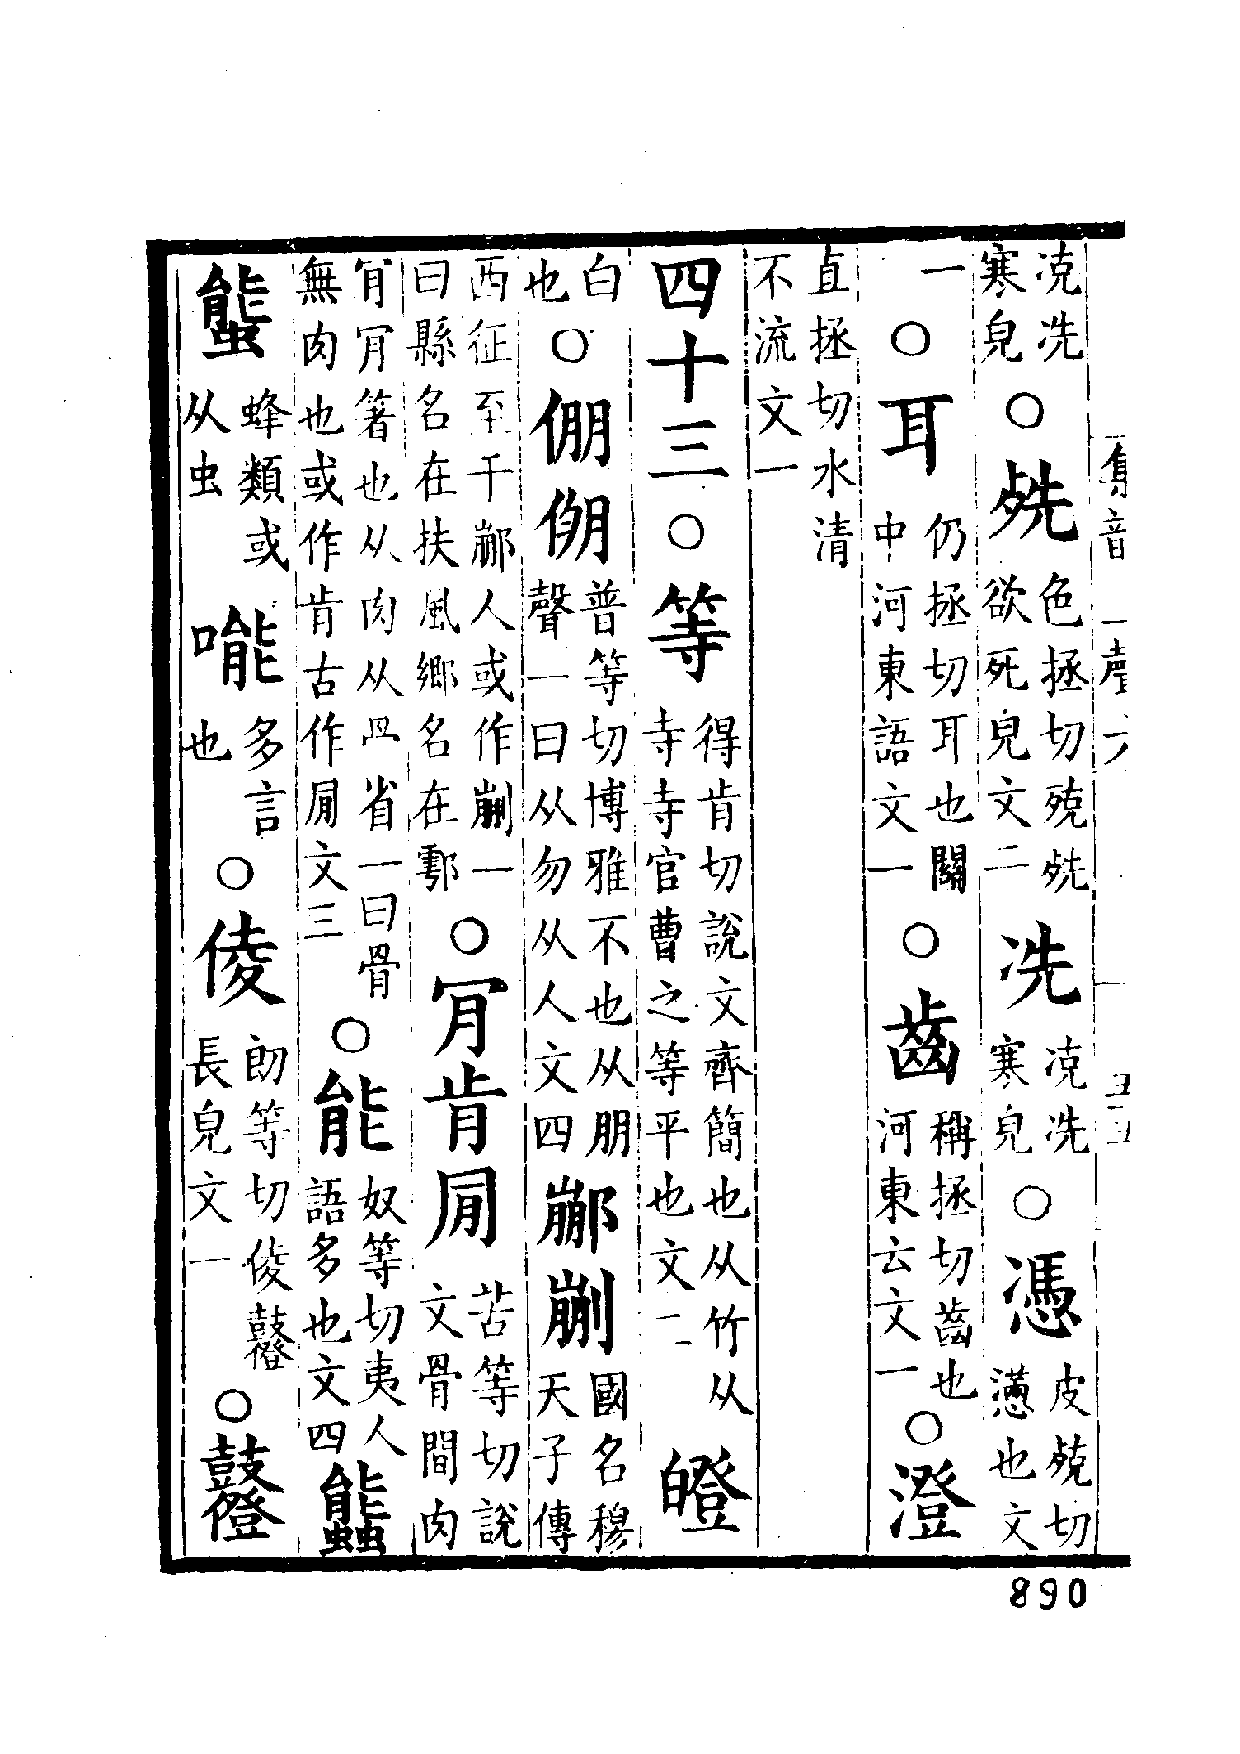 㓑冼寒皃○𣨼色拯切殑𣨼欲死皃文二冼㓑冼寒皃○憑皮殑切懣也文
一○耳仍拯切耳也關中河東語文一○齒稱拯切齒也河東云文一○澄
直拯切水清不流文一
四十三○等得肯切說文齊簡也从竹从寺寺官曹之等平也文二
白也○倗普等切博雅不也从朋聲一曰从勿从人文四䣙國名穆天子傳
西征至于䣙人或作一曰縣名在扶風鄉名在鄠○肎肯苦等切說文骨間肉
肎肎箸也从肉从冎省一曰骨無肉也或作肯古作文三○能奴等切夷人語多也文四
螚蜂類或从虫㘄多言也○倰朗等切倰長皃文一○
890